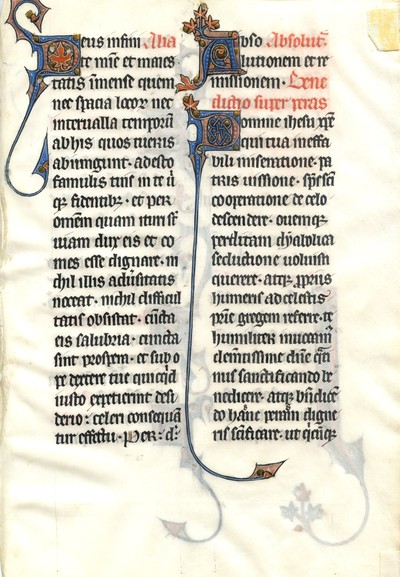 Deus infini Alia
te mīe et maies
tatis īmense quem
nec spacia locoꝝ nec
interualla temporū
ab hiis quos tueris
abiungunt · adesto
famulis tuis in te ū
qꝫ fidentibꝫ · et per
omēm quam ituri sт̄
uiam dux eis et co
mes esse dignare · ni
chil illis aduͥsitatis
noceat · nichil difficul
tatis obsistat · cūcta
eis salubria · cuncta
sint prospera · et sub o
pe dextere tue quicqͥd
iusto expetierint desi
derio: celeri consequā
tur effectu · Per · d̄:
Absolut̄.
lutionem et re
missionem · Bene
dictio super peras
Domine ihesu xp̄e
qui tua ineffa
bili miseratione · pa
tris iussione · sp̄s sc̄i
cooperatione de celo
descendere · ouemqꝫ
perditam dyabolica
seductione uoluisti
querere · atqꝫ ꝓpriis
humeris ad celestis
pr̄ie gregem referre · te
humiliter inuocam
clem̄tissime dn̄e qͣti
nus sanctificando be
nedicere · atqꝫ bn̄dicē
do hāc peram digne
ris sc̄ificare · ut qͥcūqꝫ